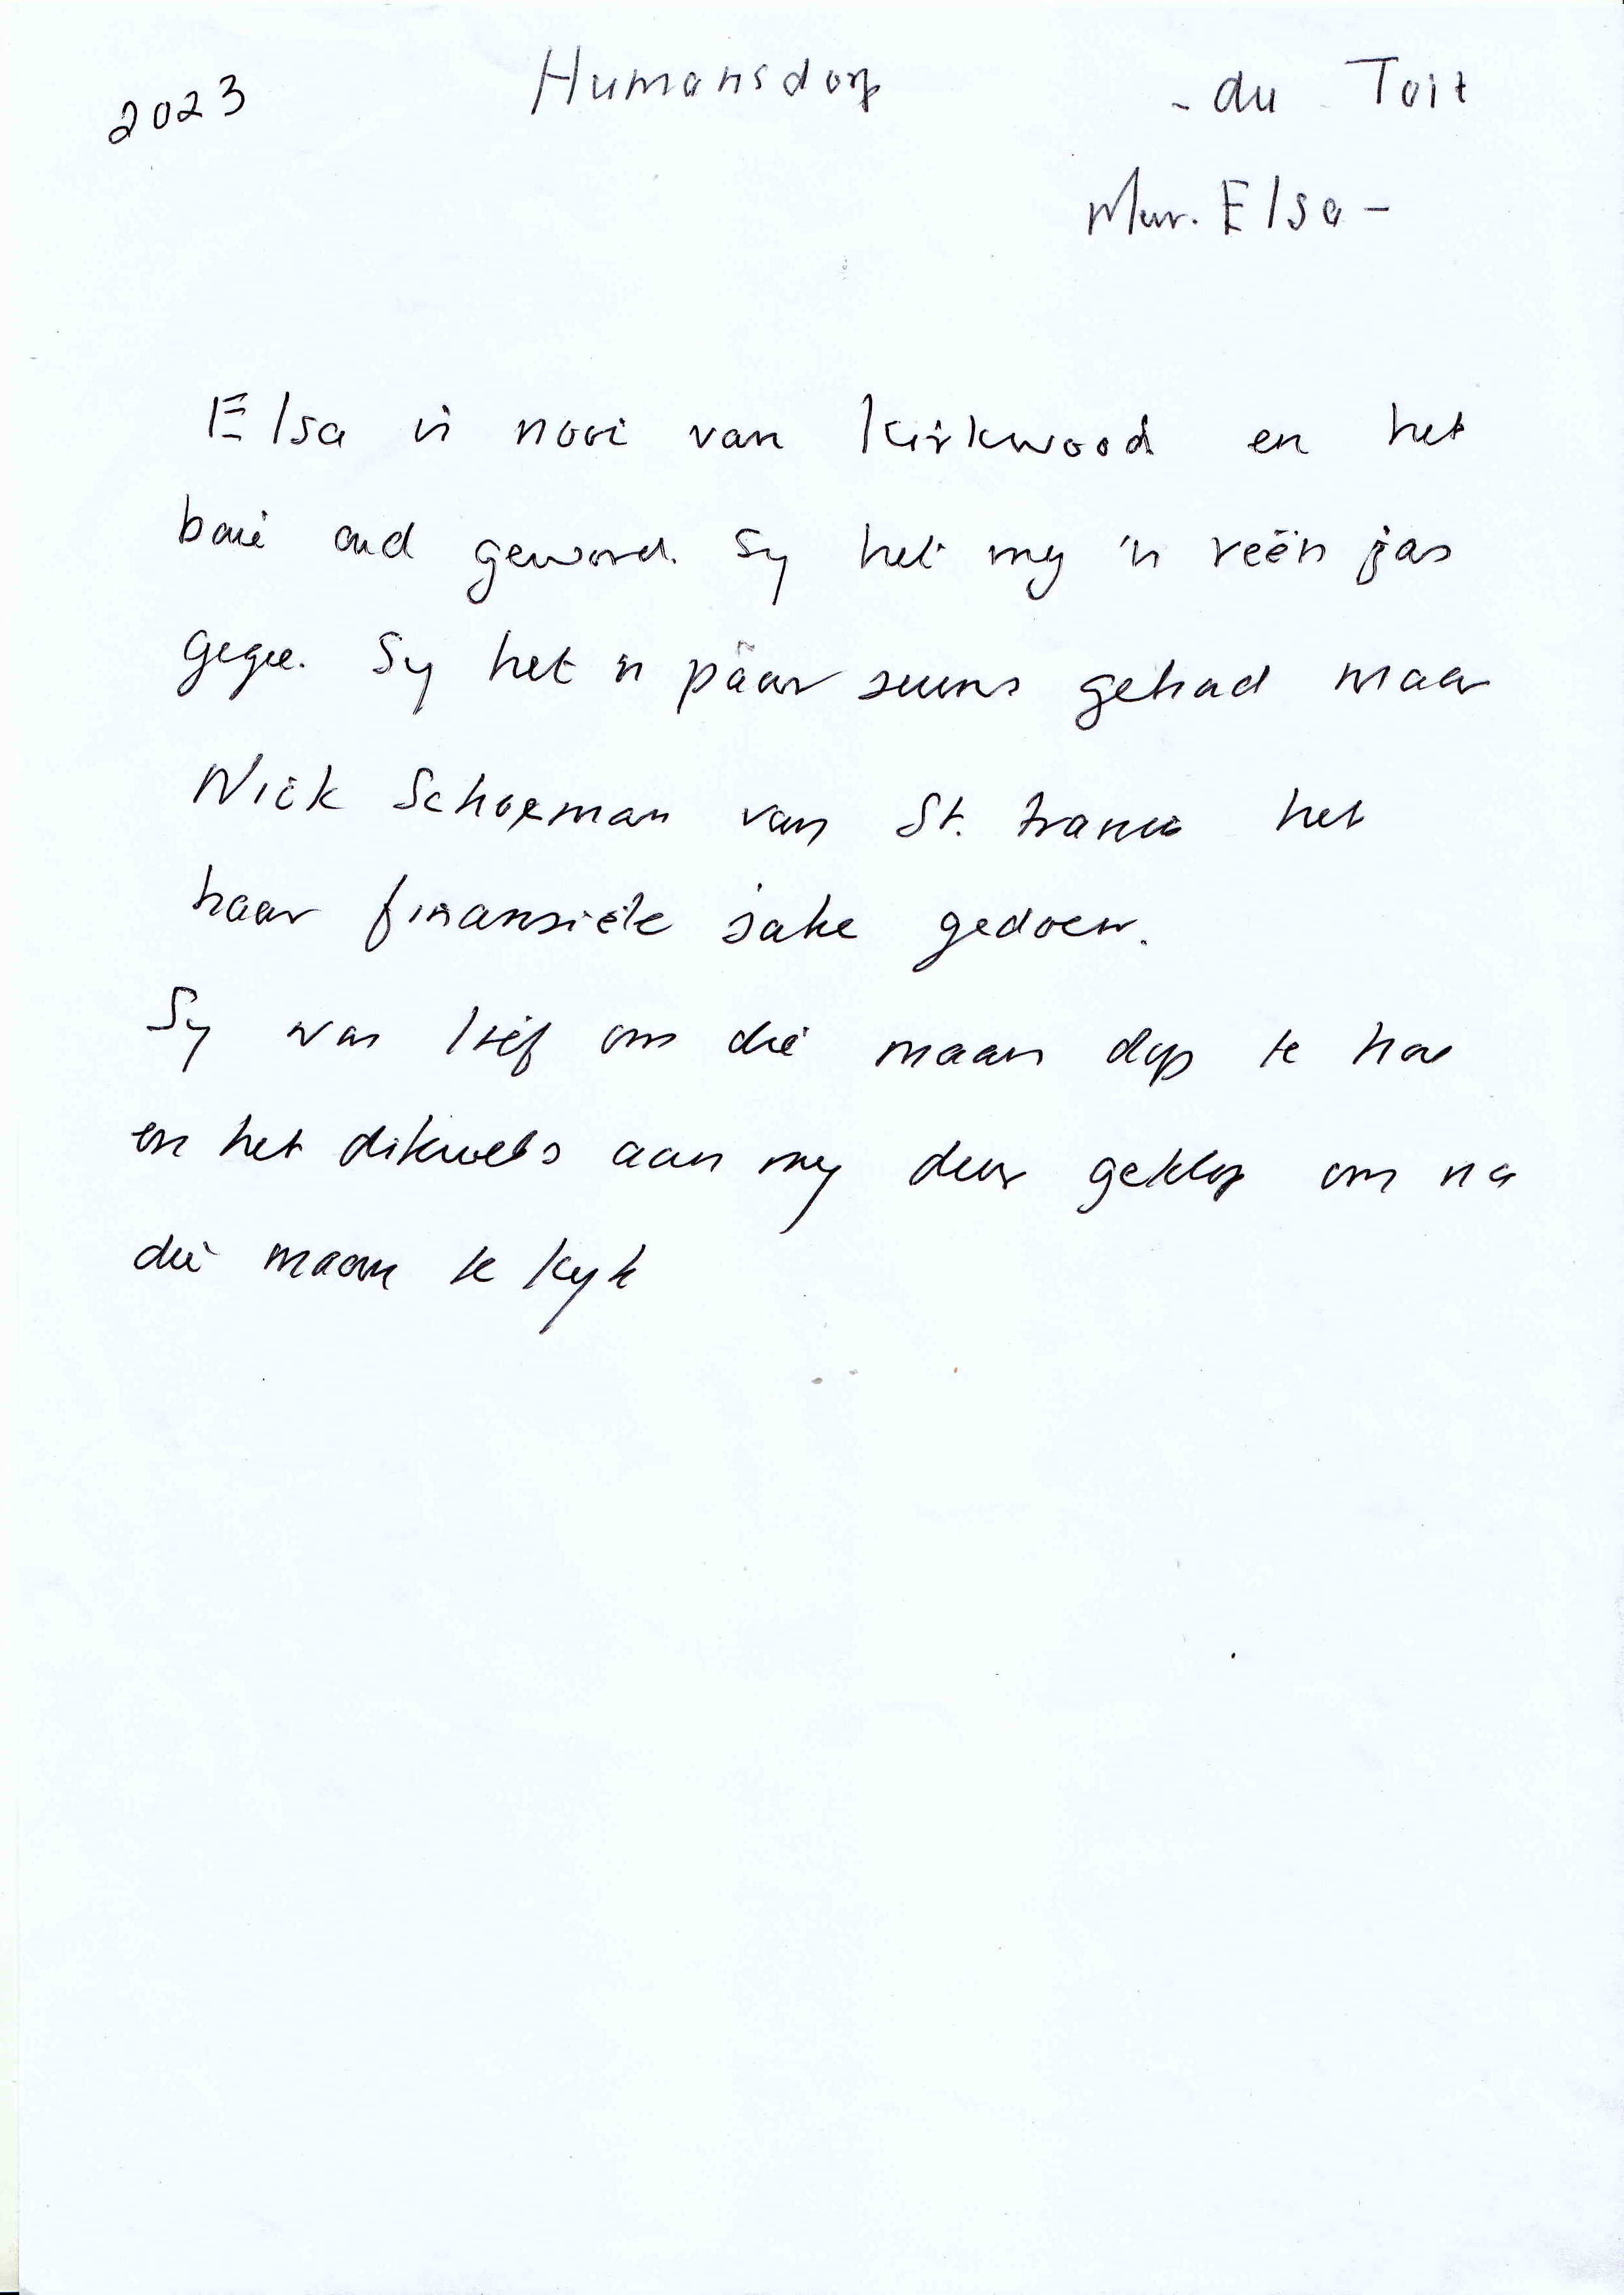 2023 Humansdorp - du Toit
Mev. Elsa -
Elsa 'n nooi van Kirkwood en het
baie oud geword. Sy het my 'n reën jas
gegee. Sy het 'n paar seuns gehad maar
Nick Schoeman van St. Francis het
haar finansiële sake gedoen.
Sy was lief om die maan dop te hou
en het dikwels aan my deur geklop om na
die maan te kyk